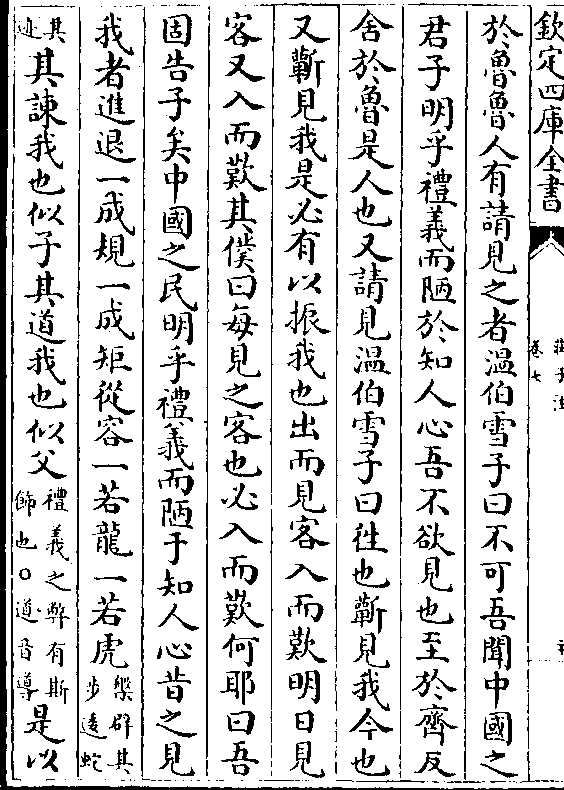 欽定四庫全書
卷七
於魯魯人有請見之者温伯雪子曰不可吾聞中國之
君子明乎禮義而陋於知人心吾不欲見也至於齊反
舍於魯是人也又請見温伯雪子曰徃也蘄見我今也
又蘄見我是必有以振我也出而見客入而歎明日見
客又入而歎其僕曰每見之客也必入而歎何耶曰吾
固告子矣中國之民明乎禮義而陋于知人心昔之見
我者進退一成規一成矩從容一若龍一若虎槃辟其步逶蛇
其迹其諫我也似子其道我也似父禮義之弊有斯飾也○道音導是以